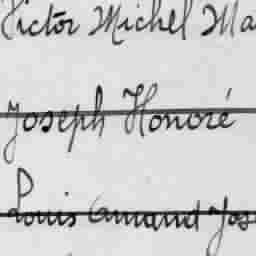 Victor Michel Ma
Joseph Honoré
Louis Amand Jos